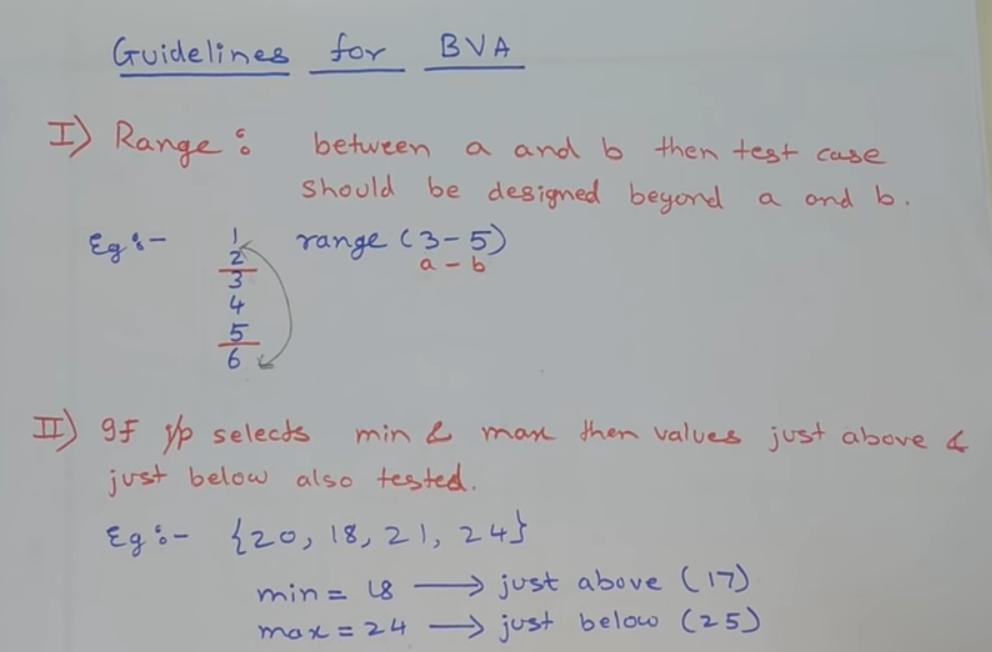 Guidelines for BVA
I) Range : between a and b then test case
should be designed beyond a and b.
Eg :- 1 range (3-5)
2 a - b
3
4
5
6
II) If i/p selects min & max then values just above &
just below also tested.
Eg :- {20, 18, 21, 24}
min = 18 → just above (17)
max = 24 → just below (25)